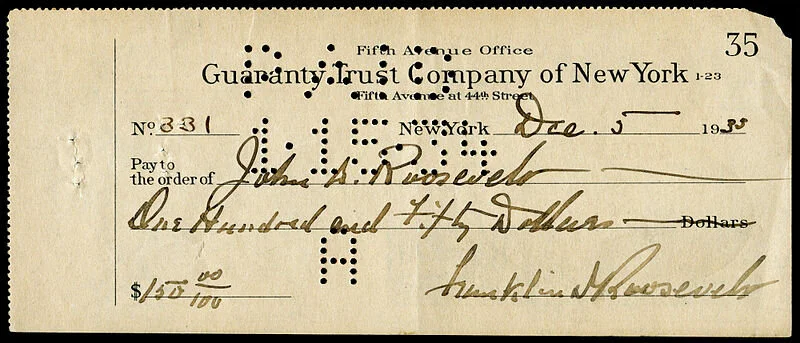 Fifth Avenue Office
35
Guaranty Trust Company of New York 1-23
Fifth Avenue at 44th Street
No 331 New York Dec. 5 1933
Pay to
the order of John A. Roosevelt
One Hundred and Fifty Dollars Dollars
$150 00/100 Franklin D Roosevelt
PAID
1.15.34
H